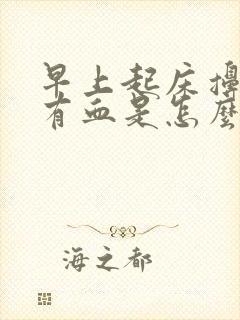 早上起床擤
有血是怎麼
海之都